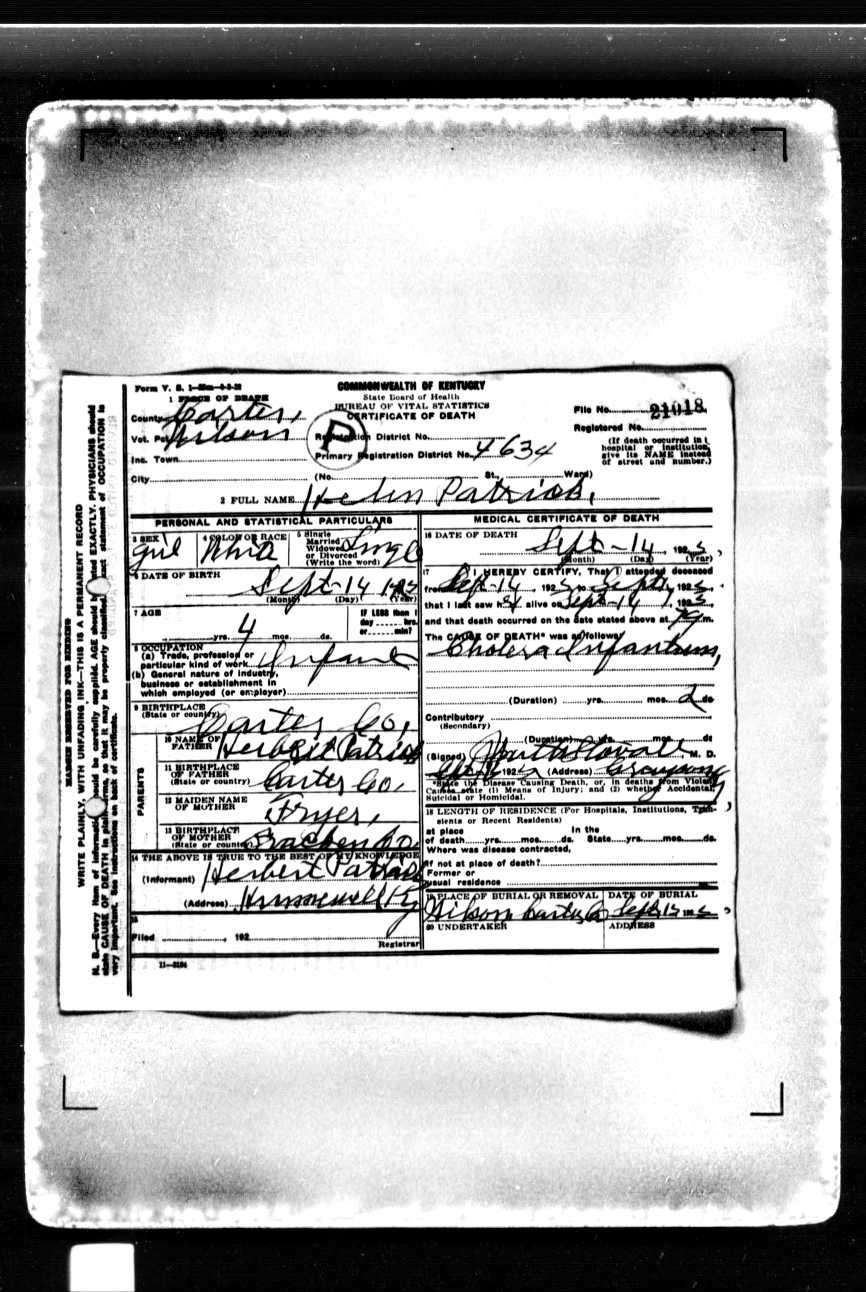 Form V. S. 1-
COMMONWEALTH OF KENTUCKY
State Board of Health
BUREAU OF VITAL STATISTICS
CERTIFICATE OF DEATH
1 PLACE OF DEATH
County Carter,
Vot. Pct. Wilson
Inc. Town
City
P
Registration District No.
Primary Registration District No. 4634
(No. St., Ward)
File No. 21018
Registered No.
(If death occurred in
hospital or institution,
give its NAME instead
of street and number.)
2 FULL NAME Helen Patrick,
PERSONAL AND STATISTICAL PARTICULARS
3 SEX Girl
4 COLOR OR RACE White
5 Single
Married
Widowed
or Divorced
(Write the word) Single
6 DATE OF BIRTH
Sept-14
(Month) (Day) (Year)
7 AGE
yrs. 4 mos. ds.
IF LESS than 1
day hrs.
or min?
8 OCCUPATION
(a) Trade, profession or
particular kind of work Infant
(b) General nature of industry,
business or establishment in
which employed (or employer)
9 BIRTHPLACE
(State or country) Carter Co,
PARENTS
10 NAME OF
FATHER Herbert Patrick
11 BIRTHPLACE
OF FATHER
(State or country) Carter Co.
12 MAIDEN NAME
OF MOTHER Fryer,
13 BIRTHPLACE
OF MOTHER
(State or country) Bracken Co,
14 THE ABOVE IS TRUE TO THE BEST OF MY KNOWLEDGE
(Informant) Herbert Patrick
(Address) Hunnewell Ky
15
Filed , 192
Registrar
11-3184
MEDICAL CERTIFICATE OF DEATH
16 DATE OF DEATH
Sept-14 , 192
(Month) (Day) (Year)
17 I HEREBY CERTIFY, That I attended deceased
from Sept-14, 192 to Sept 192
that I last saw h alive on Sept-14, 192
and that death occurred on the date stated above at m.
The CAUSE OF DEATH* was as follows:
Cholera Infantum,
(Duration) yrs. mos. 2 ds
Contributory
(Secondary)
(Duration) yrs. mos. ds
(Signed) Stovall M. D.
192 (Address) Grayson
*State the Disease Causing Death, or, in deaths from Violent
Causes state (1) Means of Injury; and (2) whether Accidental,
Suicidal or Homicidal.
18 LENGTH OF RESIDENCE (For Hospitals, Institutions, Tran-
sients or Recent Residents)
at place In the
of death yrs. mos. ds. State yrs. mos. ds.
Where was disease contracted,
if not at place of death?
Former or
usual residence
19 PLACE OF BURIAL OR REMOVAL
Wilson Carter Co
DATE OF BURIAL
Sept 15 192
20 UNDERTAKER
ADDRESS
MARGIN RESERVED FOR BINDING
WRITE PLAINLY, WITH UNFADING INK—THIS IS A PERMANENT RECORD
N. B.—Every item of information should be carefully supplied. AGE should be stated EXACTLY. PHYSICIANS should
state CAUSE OF DEATH in plain terms, so that it may be properly classified. Exact statement of OCCUPATION is
very important. See instructions on back of certificate.